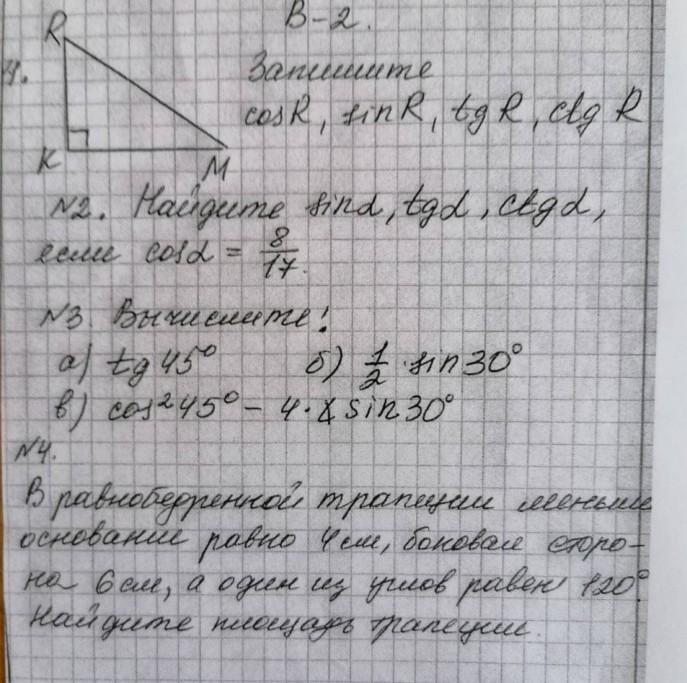 В-2.
R
1.
Запишите
cosR, sinR, tgR, ctgR
K
M
N2. Найдите sinα, tgα, ctgα,
если cosα = 8/17.
N3. Вычислите!
а) tg45° б) 1/2 · sin30°
в) cos²45° - 4 · sin30°
N4.
В равнобедренной трапеции меньше
основание равно 4см, боковая сторо-
на 6см, а один из углов равен 120°
Найдите площадь трапеции.